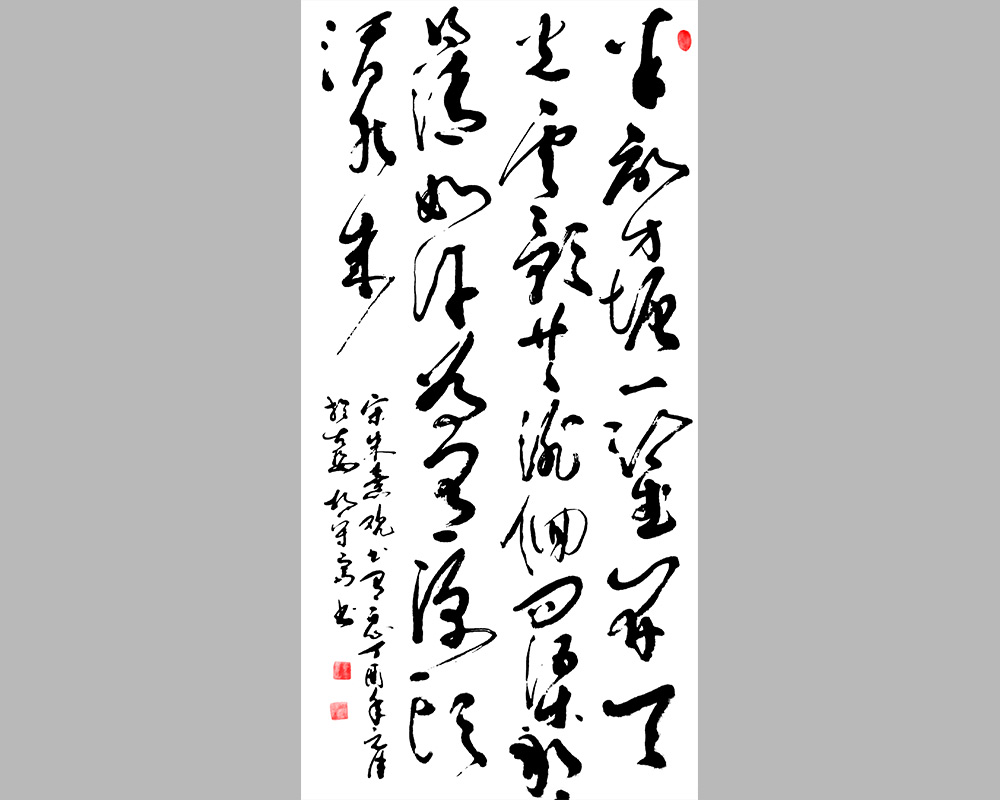 半畝方塘一鑒開天
光雲影共徘徊問渠那
得清如許為有源頭
活水來
宋朱熹观书有感丁酉年
书